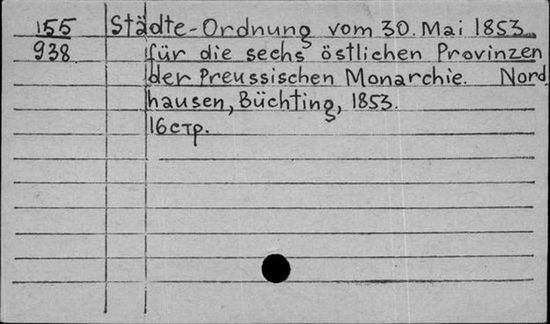 155 Städte-Ordnung vom 30. Mai 1853
938 für die sechs östlichen Provinzen
der Preussischen Monarchie. Nord
hausen, Büchting, 1853.
16 стр.